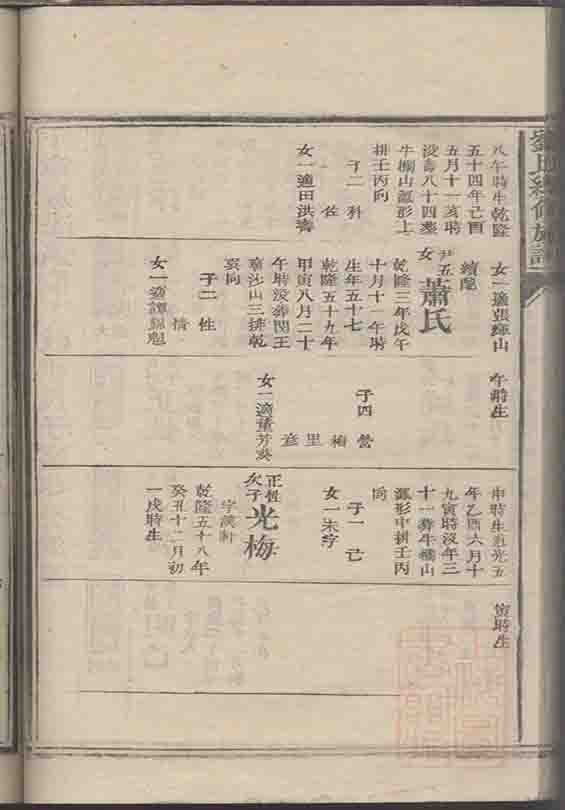 劉氏續修族譜
八午時生乾隆
五十四年己酉
五月十一亥時
没壽八十四塟
牛欄山瓢形上
排壬丙向
子二 科
佐
女一適田洪
女一適張輝山
續配
尹五女 蕭氏
乾隆三年戊午
十月十一午時
生年五十七
乾隆五十九年
甲寅八月二十
午時没葬閔王
沙山三排乾
向
子二 性
情
女一適譚
午時生
子四 營
梅
里
彥
女一適董芳葵
申時生道光五
年乙酉六月十
九寅時没年三
十一葬牛欄山
瓢形中排壬丙
向
子一 己
女一未字
正性次子 光梅
字漢軒
乾隆五十八年
癸丑十二月初
一戌時生
寅時生